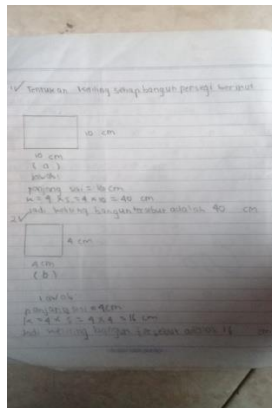 1 Tentukan keliling setiap bangun persegi berikut
10 cm
10 cm
( a )
Jawab:
panjang sisi = 10 cm
K = 4 x s = 4 x 10 = 40 cm
Jadi keliling bangun tersebut adalah 40 cm
2
4 cm
4 cm
( b )
Jawab
panjang sisi = 4 cm
K = 4 x s = 4 x 4 = 16 cm
Jadi keliling bangun tersebut adalah 16 cm